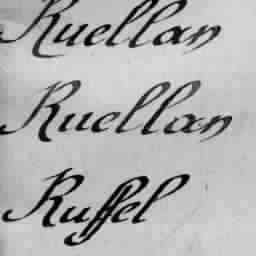 Ruellan
Ruellan
Ruffel